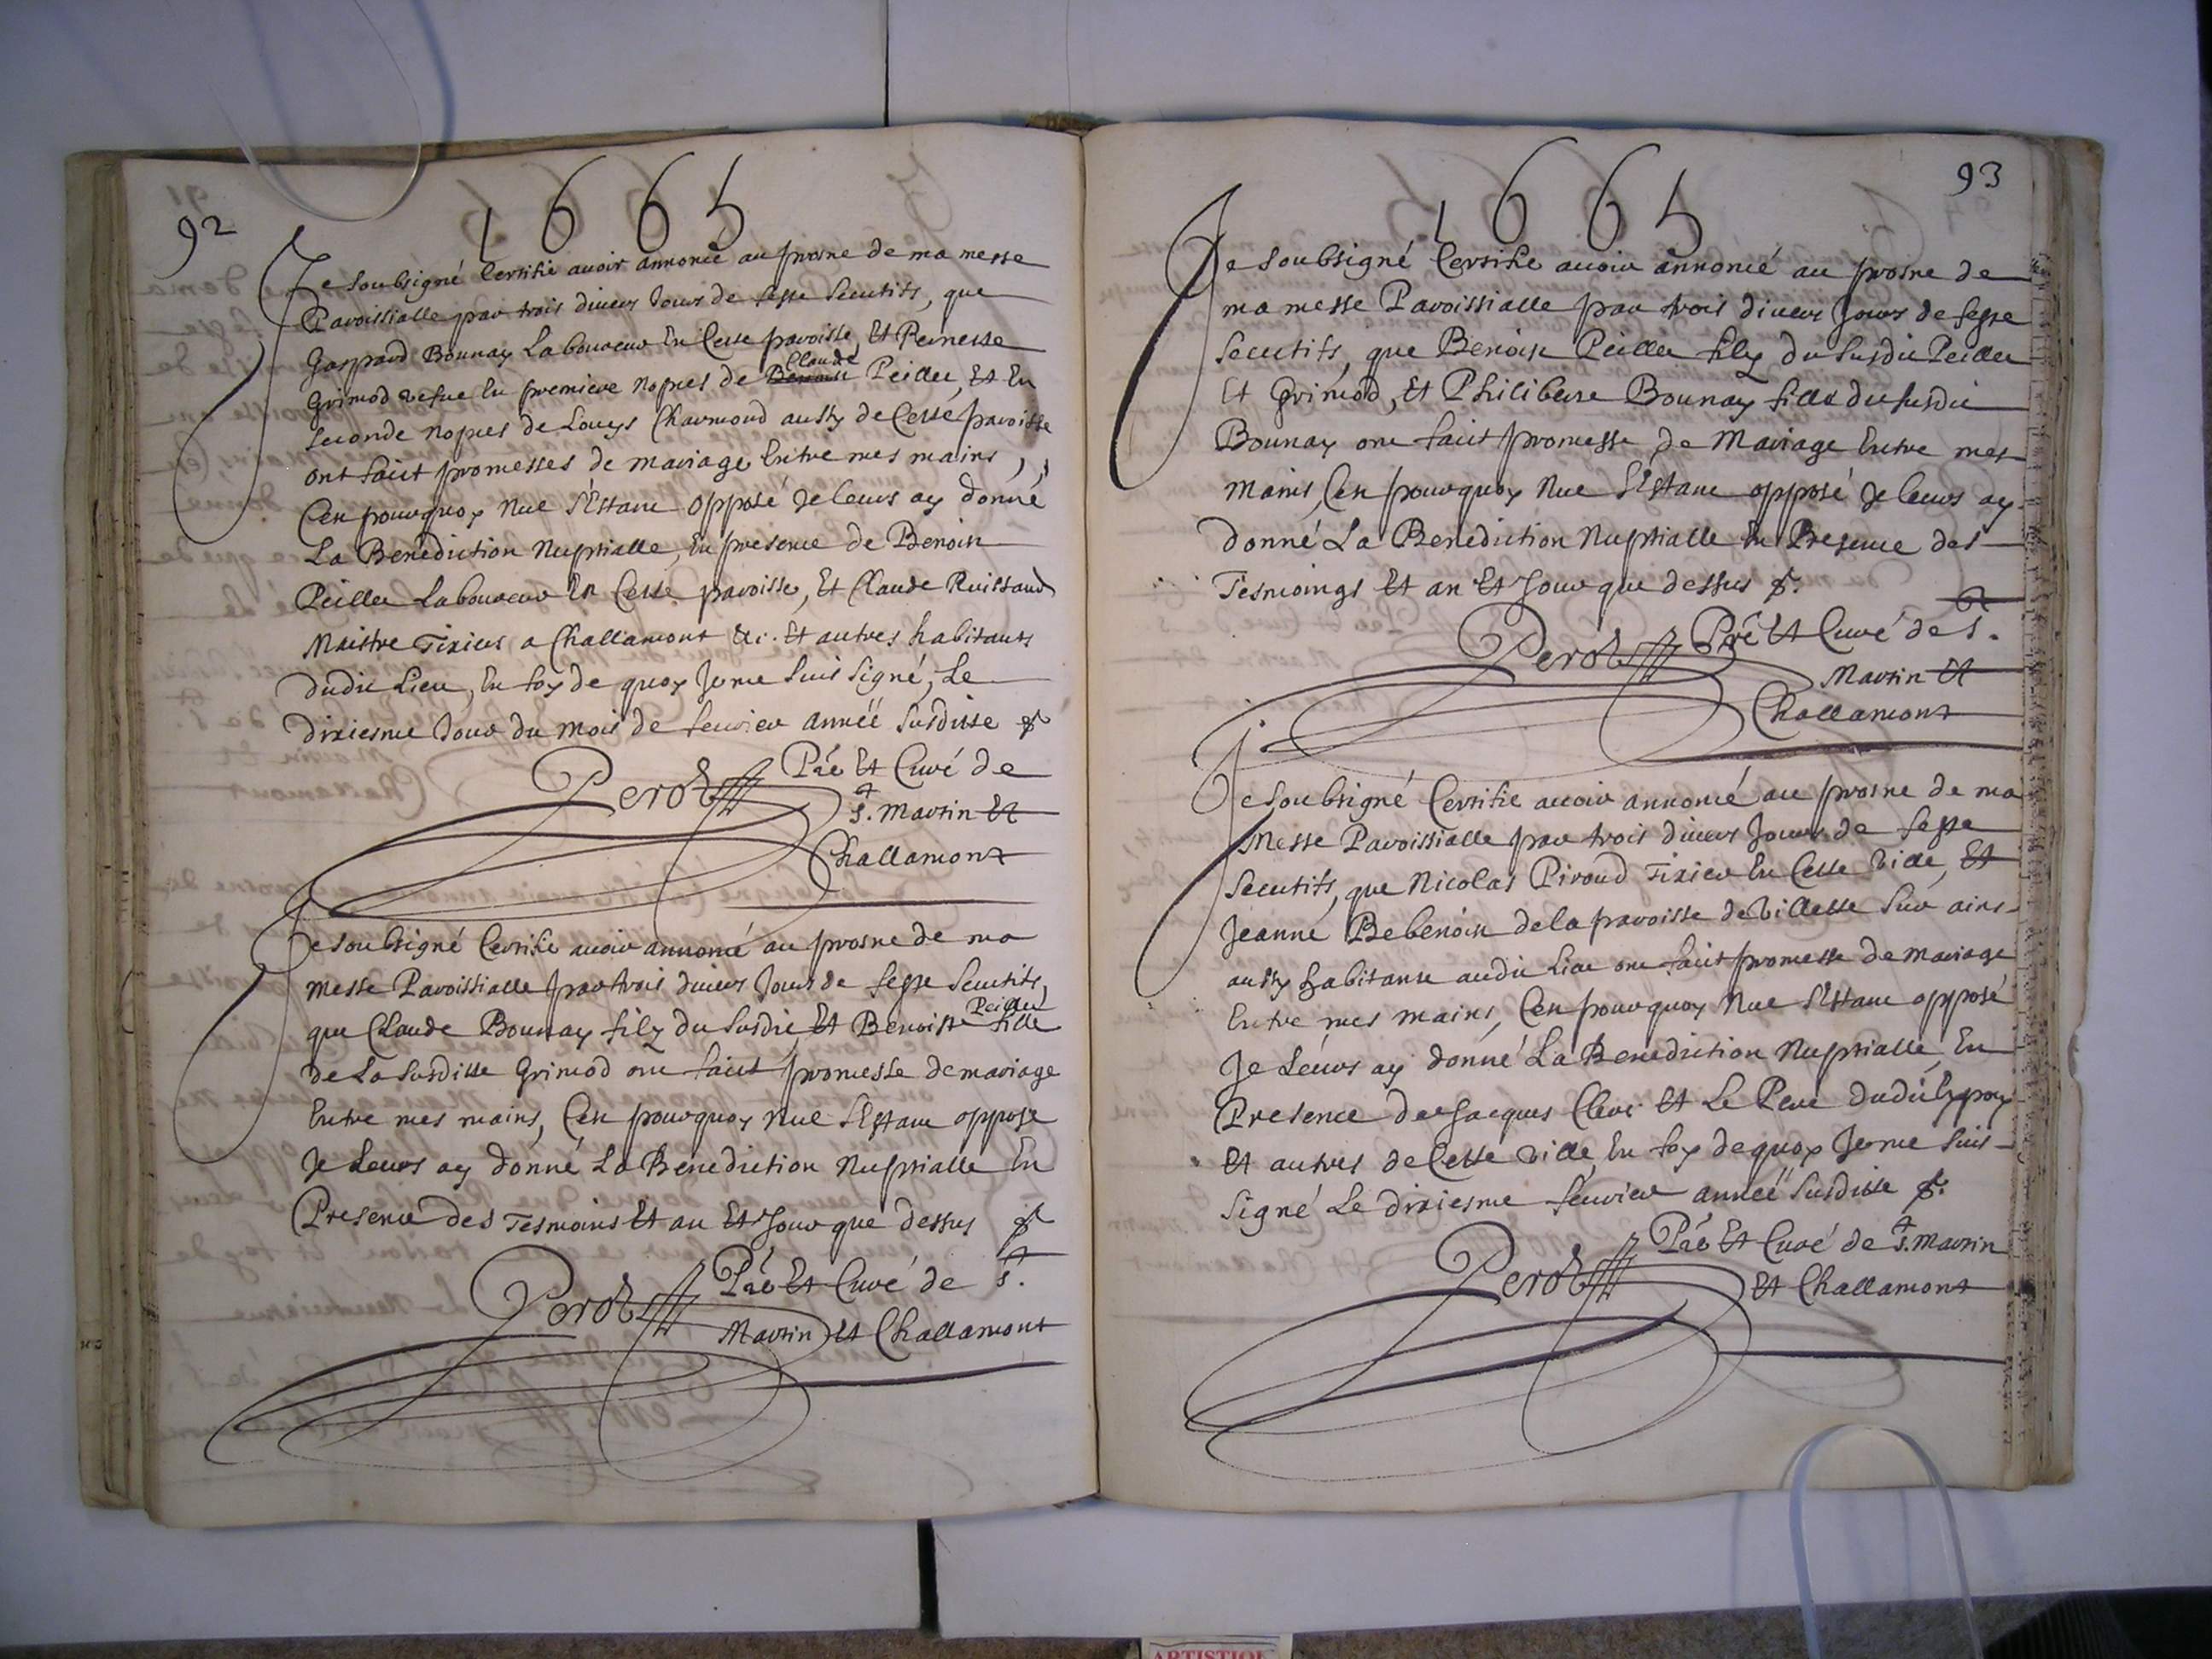 92
1665
Je soubsigné Certifie avoir annoncé au prosne de ma messe
Paroissialle par trois divers Jours de feste secutifs, que
Gaspard Bounay Laboureur En Cette paroisse, Et Pernette
Claude
Grimod vefue En premiere nopces de Benoist Peiller, Et En
seconde nopces de Louys Charmond aussy de Cette paroisse
ont faict promesses de mariage Entre mes mains,
C'en pourquoy Nul s'Estant opposé Je leurs ay donné
La Benediction Nuptialle, En presence de Benoist
Peiller Laboureur En Cette paroisse, Et Claude Ruissaud
Maistre Tixier a Challamont &c. Et autres habitants
dudit Lieu, En foy de quoy Je me suis signé, Le
dixiesme Jour du Mois de feuvier année susditte
Perot Pre Et Curé de
St. Martin Et
Challamont
Je soubsigné Certifie avoir annoncé au prosne de ma
messe Paroissialle par trois divers Jours de feste secutifs,
Peiller
que Claude Bounay filz du susdit, Et Benoiste fille
de La susditte Grimod ont faict promesse de mariage
Entre mes mains, C'en pourquoy Nul s'Estant opposé
Je Leurs ay donné La Benediction Nuptialle En
Presence des Tesmoins Et an Et Jour que dessus
Perot Pre Et Curé de St.
Martin Et Challamont
93
1665
Je soubsigné Certifie avoir annoncé au prosne de
ma messe Paroissialle par trois divers Jours de feste
secutifs, que Benoist Peiller filz du susdit Peiller
Et Grimod, Et Philiberte Bounay fille du susdit
Bounay ont faict promesse de Mariage Entre mes
mains, C'en pourquoy Nul s'Estant opposé Je leurs ay
donné La Benediction Nuptialle En Presence des
Tesmoings Et an Et Jour que dessus
Perot Pre Et Curé de St.
Martin Et
Challamont
Je soubsigné Certifie avoir annoncé au prosne de ma
Messe Paroissialle par trois divers Jours de feste
secutifs, que Nicolas Piroud Tixier En Cette ville, Et
Jeanne Bebenoist de la paroisse de Villette sur ains
aussy habitante audit Lieu ont faict promesse de mariage
Entre mes mains, C'en pourquoy Nul s'Estant opposé
Je Leurs ay donné La Benediction Nuptialle, En
Presence de Jacques Clerc Et Le Pere dudit Espoux
Et autres de Cette ville, En foy de quoy Je me suis
signé Le dixiesme feuvier année susditte
Perot Pre Et Curé de St. Martin
Et Challamont